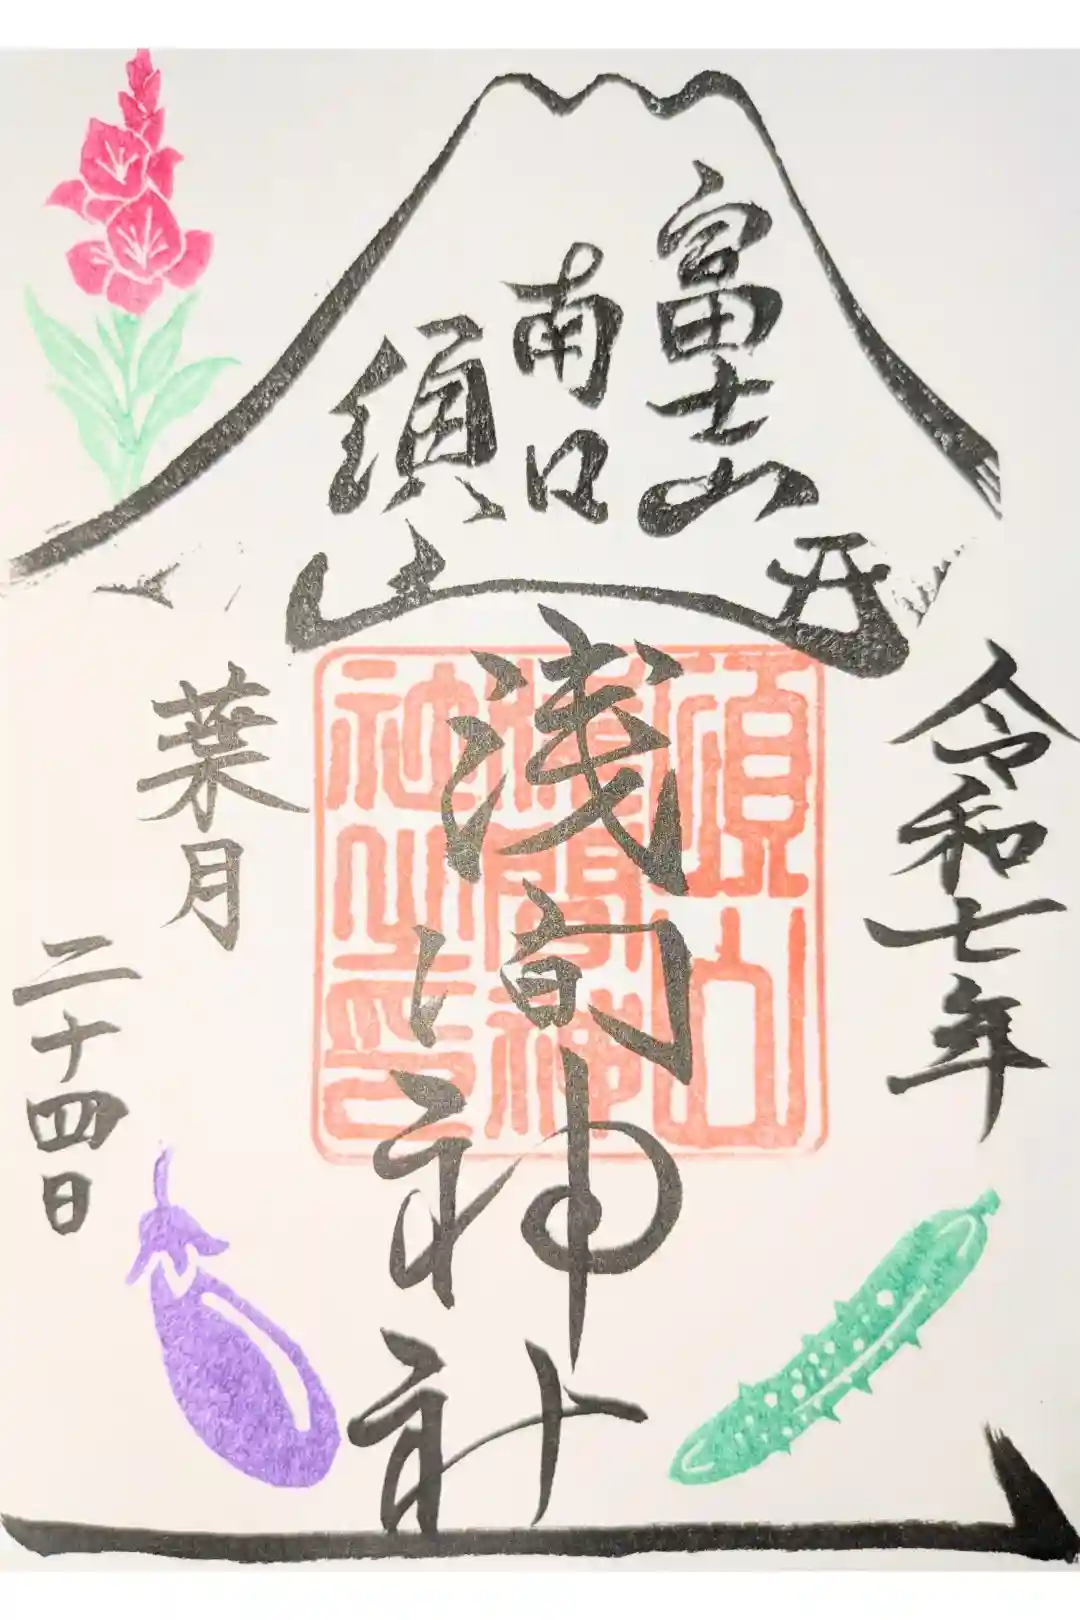 富士山
南口
須山
浅間神社
令和七年
葉月
二十四日
須山
淺間神
社之印